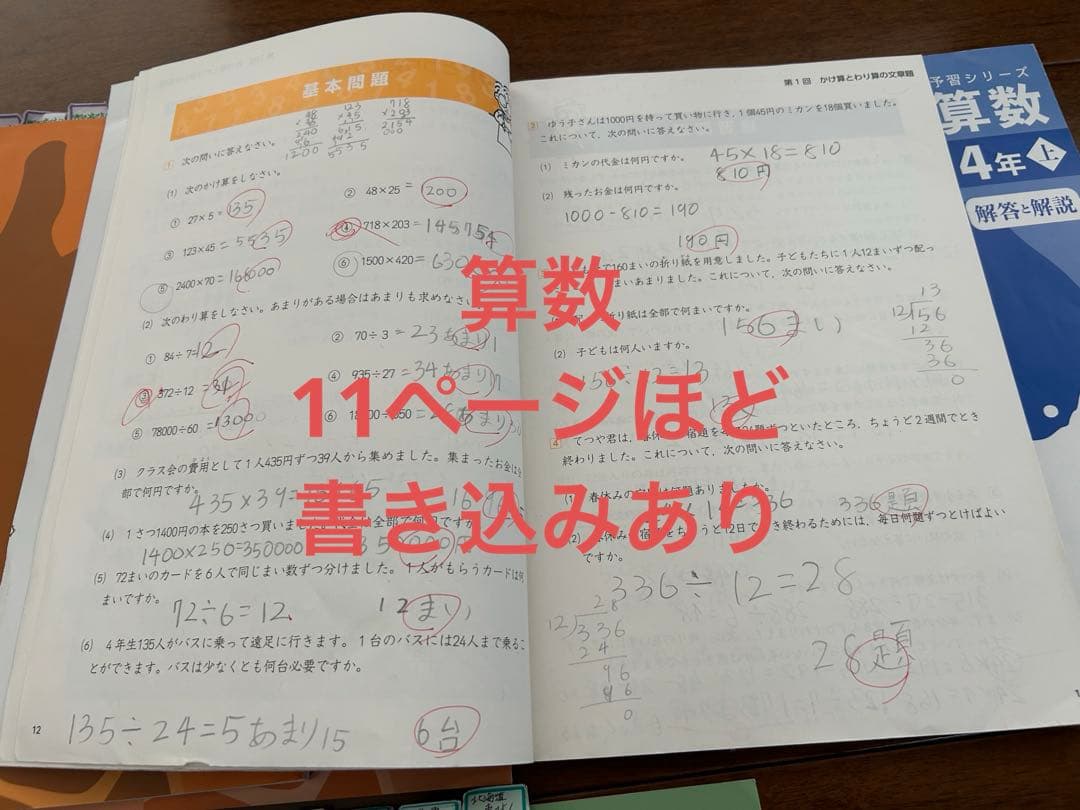 基本問題
48
123
718
×45
×203
615
2154
492
000
1200
5535
1 次の問いに答えなさい。
(1) 次のかけ算をしなさい。
① 27×5=135
② 48×25=
1200
③ 123×45=5535
④ 718×203=145754
⑤ 2400×70=168000
⑥ 1500×420=630
(2) 次のわり算をしなさい。あまりがある場合はあまりも求めなさい
① 84÷7=12
② 70÷3=23あまり1
③ 372÷12=
④ 935÷27=34あまり17
⑤ 78000÷60=1300
⑥
(3) クラス会の費用として1人435円ずつ39人から集めました。集まったお金は全
部で何円ですか。
435×39=
(4) 1さつ1400円の本を250さつ買いました
全部で何円ですか
1400×250=350000
350000円
(5) 72まいのカードを6人で同じまい数ずつ分けました。1人がもらうカードは何
まいですか。
72÷6=12
12まい
(6) 4年生135人がバスに乗って遠足に行きます。1台のバスには24人まで乗るこ
とができます。バスは少なくとも何台必要ですか。
135÷24=5あまり15
6台
12
第1回 かけ算とわり算の文章題
2 ゆう子さんは1000円を持って買い物に行き、1個45円のミカンを18個買いました。
これについて、次の問いに答えなさい。
(1) ミカンの代金は何円ですか。
45×18=810
810円
(2) 残ったお金は何円ですか。
1000-810=190
190円
で160まいの折り紙を用意しました。子どもたちに1人12まいずつ配っ
まいあまりました。これについて、次の問いに答えなさい。
折り紙は全部で何まいですか。
156まい
(2) 子どもは何人いますか。
156÷12=13
13
12)156
12
36
36
0
4 てつや君は、春休み
宿題を
題ずつといたところ、ちょうど2週間でとき
終わりました。これについて、次の問いに答えなさい。
(1) 春休みの
何題ありましたか。
336
336題
(2) 春休み
宿題をちょうど12日でとき終わるためには、毎日何題ずつとけばよい
ですか。
336÷12=28
28
12)336
24
96
96
0
28題
予習シリーズ
算数
4年上
解答と解説
算数
11ページほど
書き込みあり